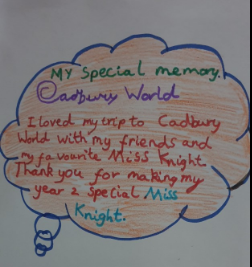 My special memory.
Cadbury World
I loved my trip to Cadbury
World with my friends and
my favourite Miss Knight.
Thank you for making my
year 2 special Miss
Knight.